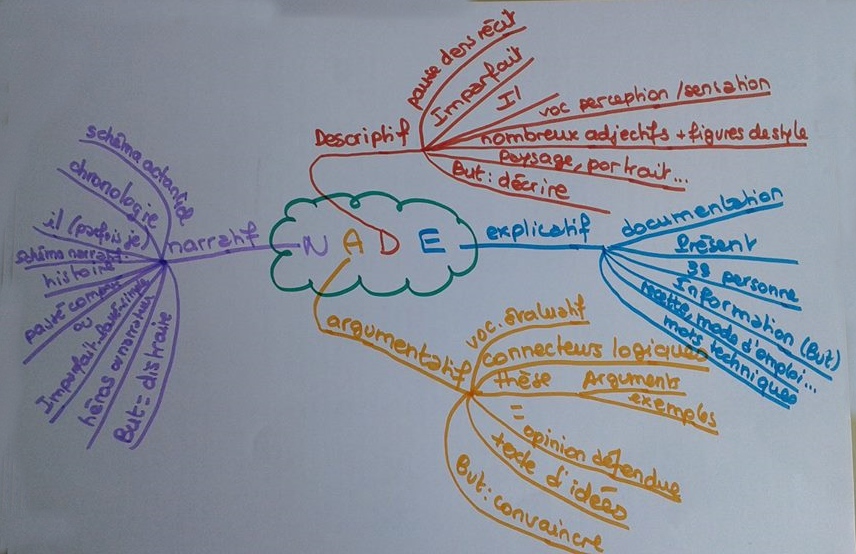 N A D E
narratif
schéma actantiel
chronologie
il (parfois je)
schéma narratif
histoire
passé composé
ou
Imparfait, passé simple
héros ou narrateur
But = distraire
Descriptif
pause dans récit
Imparfait
Il
voc perception/sensation
nombreux adjectifs + figures de style
paysage, portrait...
But : décrire
explicatif
documentation
Présent
3e personne
Information (But)
recette, mode d'emploi...
mots techniques
argumentatif
voc. évaluatif
connecteurs logiques
thèse Arguments
exemples
= opinion défendue
texte d'idées
But : convaincre